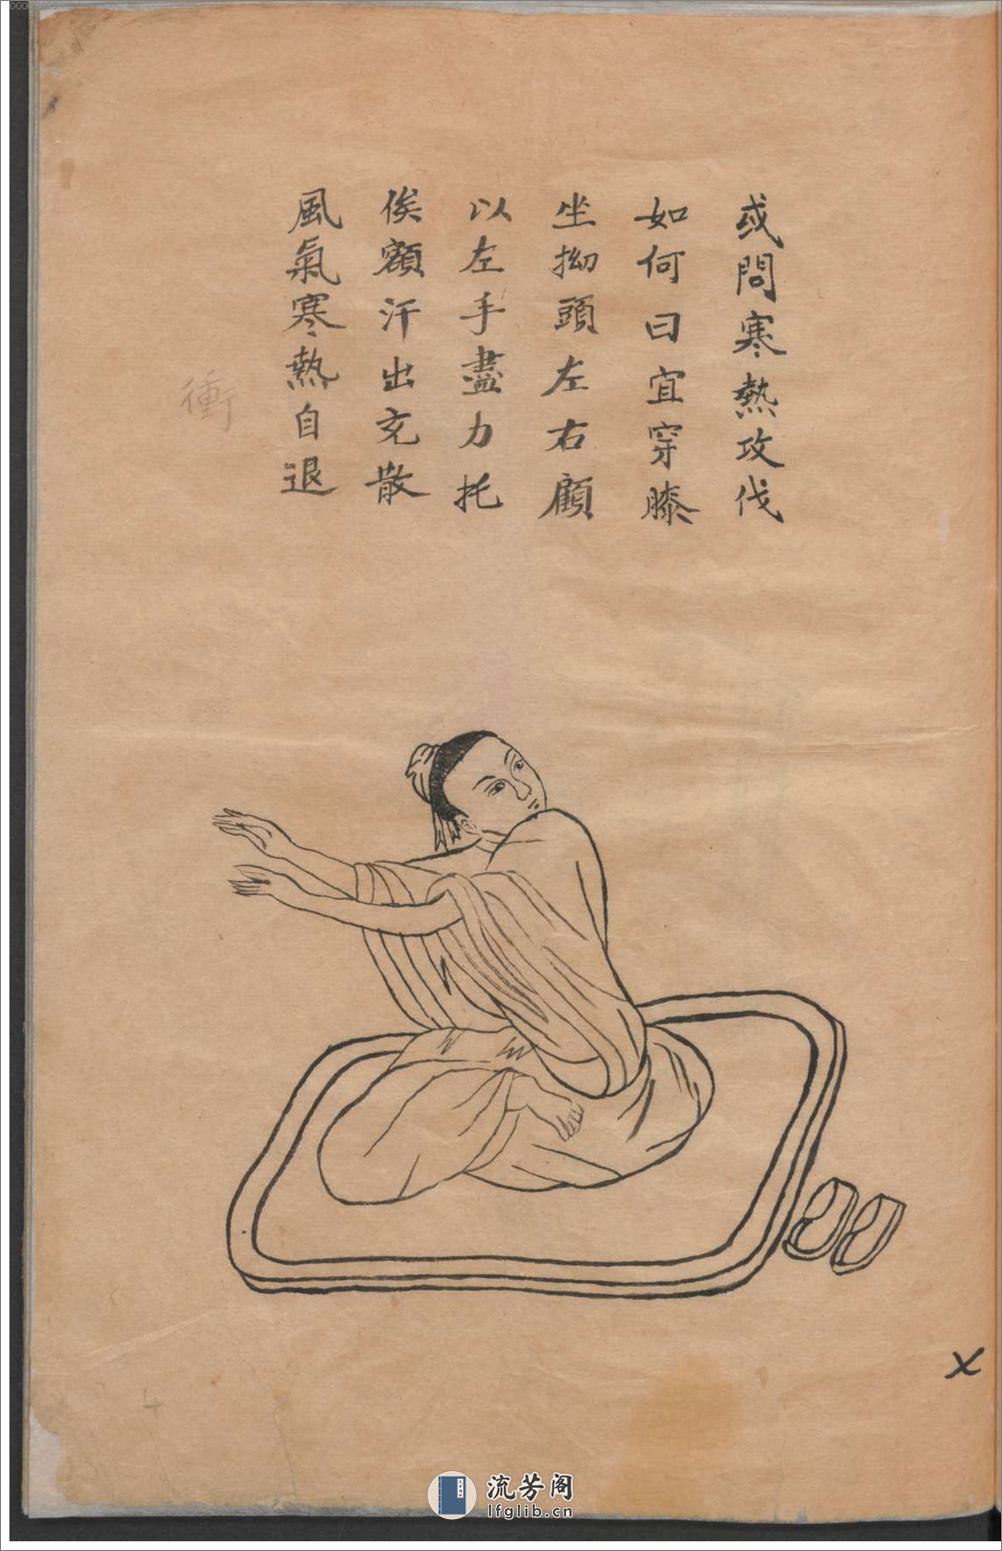 或問寒熱攻伐
如何曰宜穿膝
坐拗頭左右顧
以左手盡力托
俟額汗出充散
風氣寒熱自退
衝
流芳阁
lfglib.cn